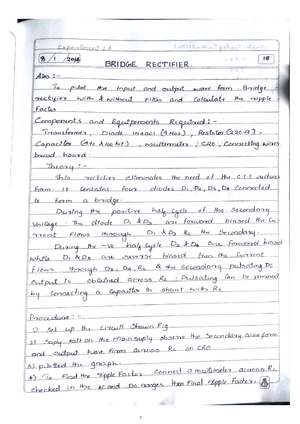 Experiment : 8
8 / 1 / 2014
18
BRIDGE RECTIFIER.
Aim :-
To plot the input and output wave form Bridge
rectifier with & without filter and calculate the ripple
Factor
Components and Equipements Required :-
Transformer, Diode IN4001 (4 Nos), Resistor
Capacitor , multimeter, CRO, Connecting wires
bread board.
Theory :-
This rectifier eliminates the need of the C.T.T
Form. It contains four diodes D1, D2, D3, D4 Connected
to form a bridge.
During the positive half cycle of the secondary
Voltage. The diode D1 & D3 are forward biased the Cu-
rrent Flows through D1 & D3 RL the Secondary.
During the -ve half cycle D2 & D4 are Forward biased
while D1 & D3 are reverse biased then the Current
Flows through D2, D4, RL & the Secondary pulsating DC
output is obtained across RL. Pulsating Can be removed
by connecting a Capacitor in shunt with RL
Procedure :-
1) Set up the circuit Shown Fig.
2) Suply volt on the main suply observe the Secondary wave form
and output wave form across RL on CRO
3) plotted the graph.
4) To Find the ripple Factor Connect a multimeter across RL.
checked in the AC and DC ranges then Final ripple Factor.